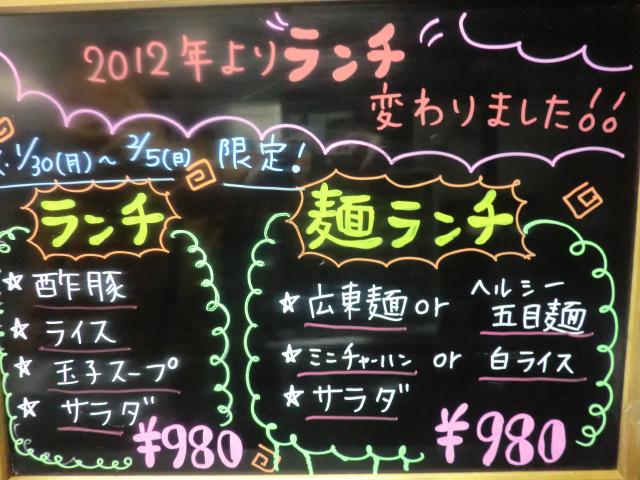 2012年よりランチ
変わりました!!
1/30(月)～2/5(日) 限定!
ランチ
☆酢豚
☆ライス
☆玉子スープ
☆サラダ
¥980
麺ランチ
☆広東麺 or ヘルシー五目麺
☆ミニチャーハン or 白ライス
☆サラダ
¥980